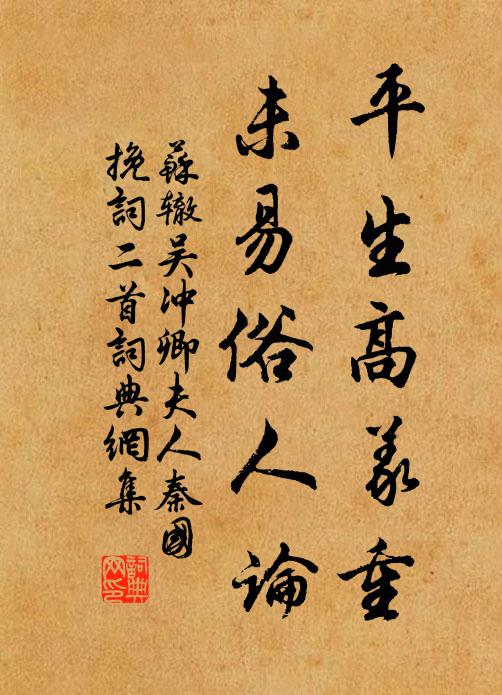 平生高義重
未易俗人論
蘇轍吴冲卿夫人秦國
挽詞二首詞典網集
詞典网印